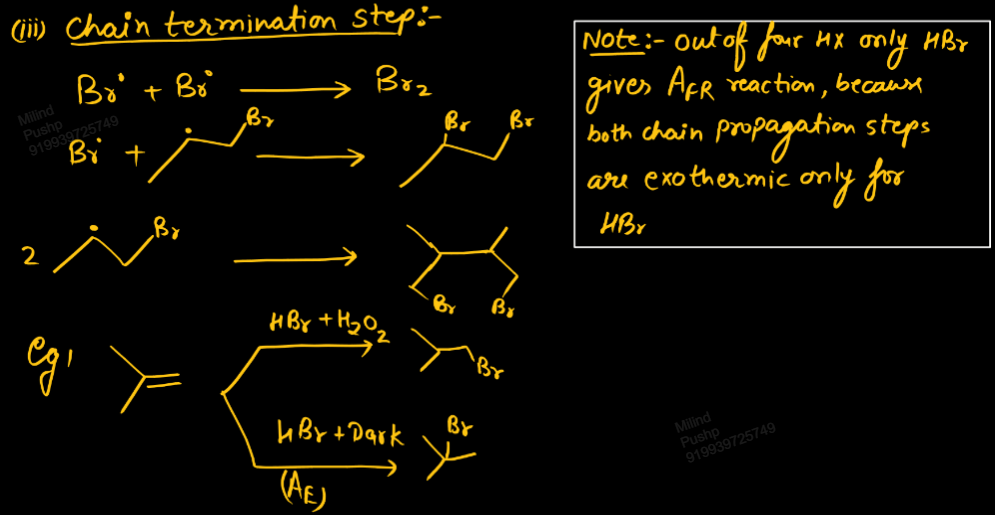 (iii) Chain termination step:-
Br• + Br• → Br2
Br• + Br → Br Br
2 Br → Br Br
Eg1 HBr + H2O2 Br
HBr + Dark Br
(AE)
Note:- Out of four HX only HBr
gives AFR reaction, because
both chain propagation steps
are exothermic only for
HBr
Milind
Pushp
919939725749
Milind
Pushp
919939725749